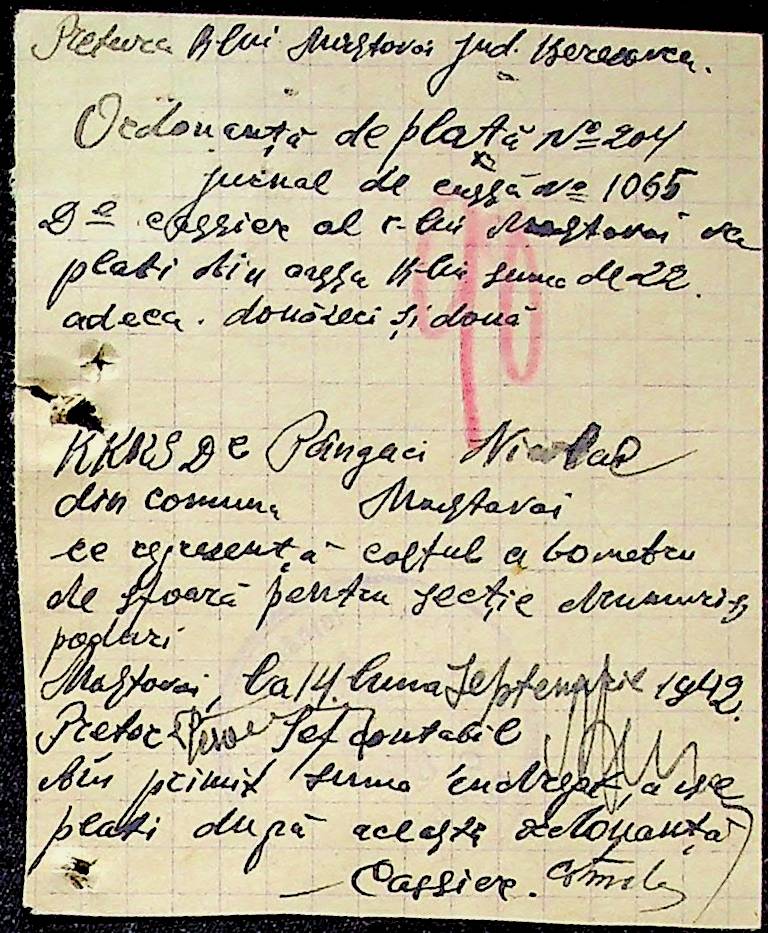 Pretura R-lui Mostovoi jud. Berezovca.
Ordonanță de plată № 204
jurnal de cassă № 1065
Dl cassier al r-lui Mostovoi va
plati din cassa R-lui suma de 22.
adeca. douăzeci și două
90
RKKS Dl Pângaci Nicolae
din comuna Mostovoi
ce represență costul a 60 metru
de sfoară pentru secție drumuri și
poduri
Mostovoi, la 14. luna Septembrie 1942.
Pretor Șef contabil
Am primit suma
plati după această ordonanță
Cassier.